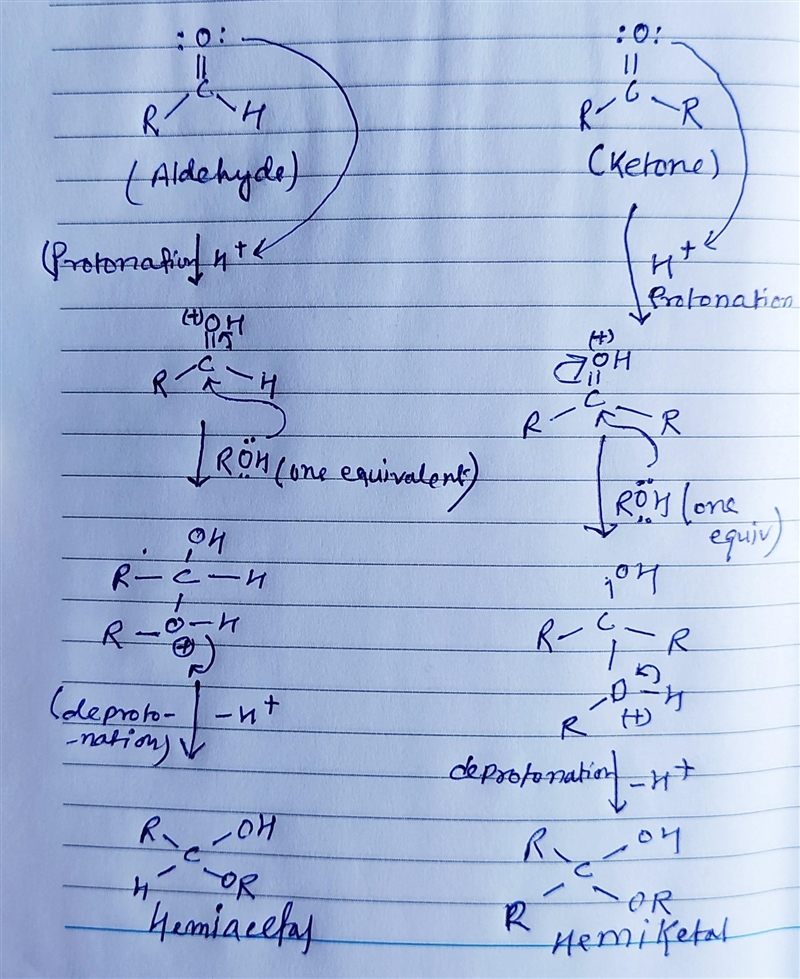 :O:
||
C
R H
(Aldehyde)
(Protonation H+
(+)OH
||
C
R H
RÖH (one equivalent)
OH
R — C — H
R — O — H
⊕
(deproto-
-nation) -H+
R OH
C
H OR
Hemiacetal
:O:
||
C
R R
(Ketone)
H+
Protonation
(+)
OH
||
C
R R
RÖH (one
equiv)
OH
C
R R
O — H
R (+)
deprotonation -H+
R OH
C
R OR
Hemiketal